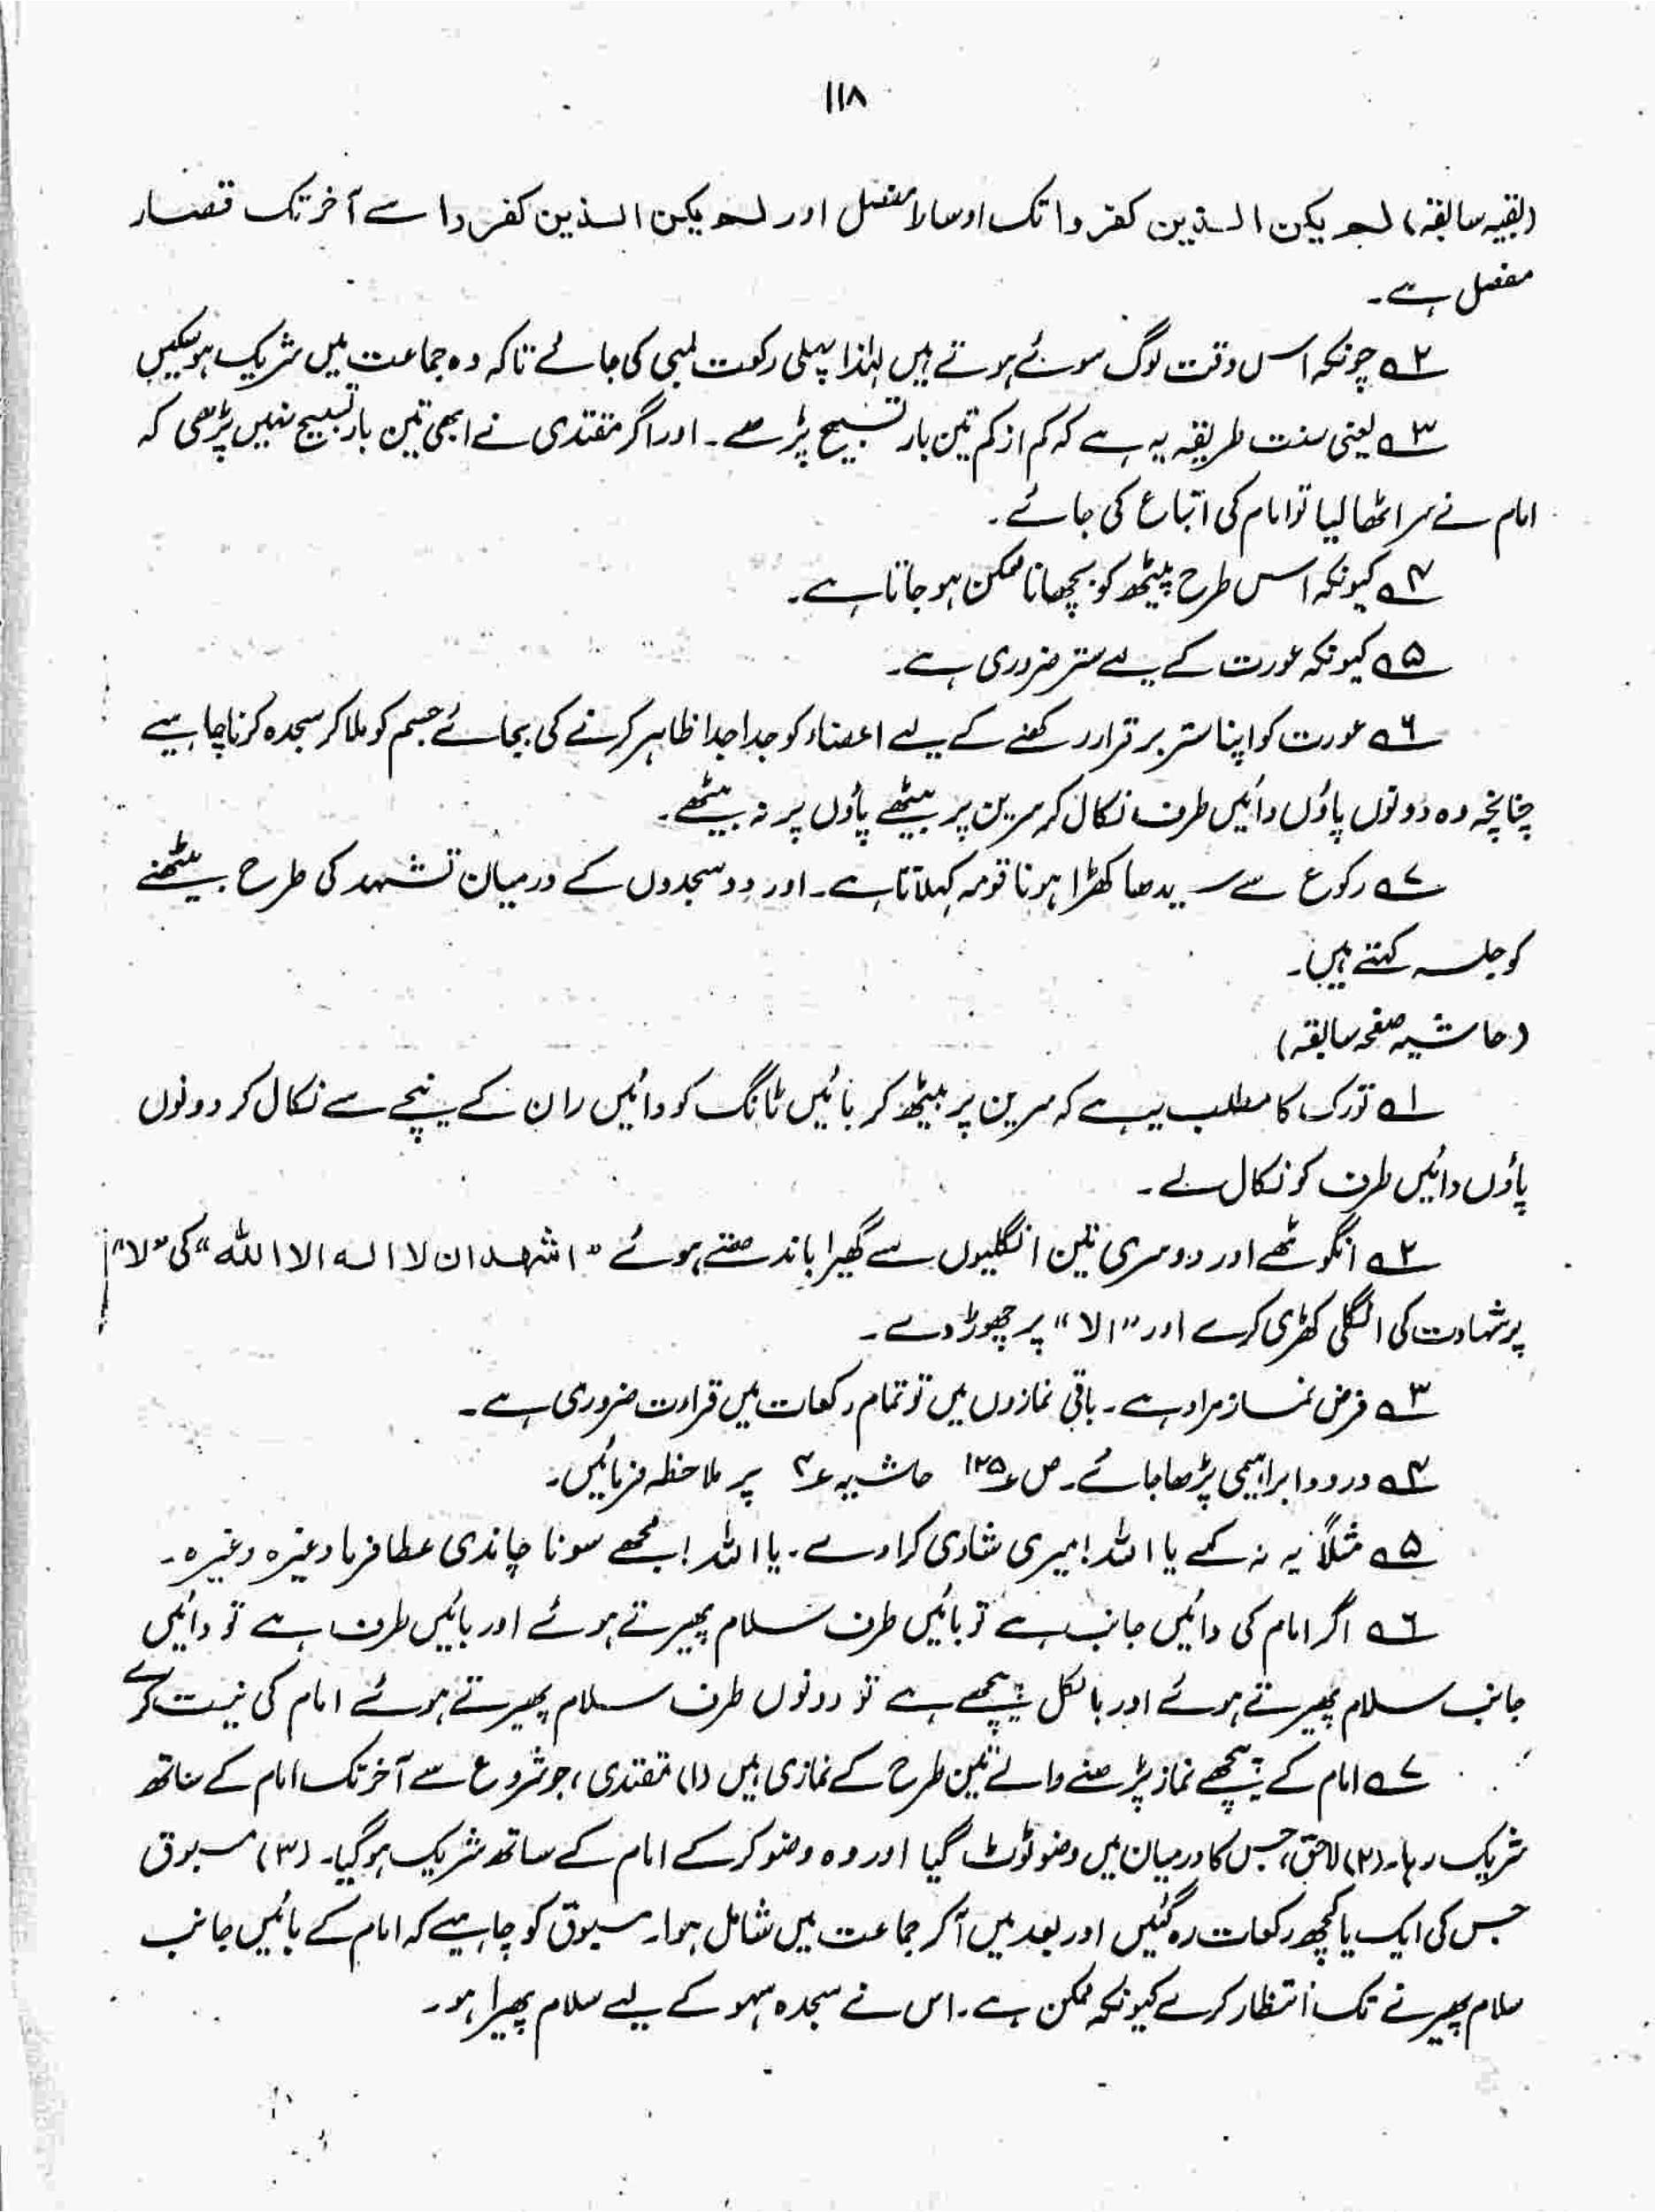 ۱۱۸
(بقیہ سابقہ) لم یکن الذین کفروا تک اوساط مفصل اور لم یکن الذین کفروا سے آخر تک قصار
مفصل ہے۔
۲؎ چونکہ اس وقت لوگ سوئے ہوتے ہیں لہٰذا پہلی رکعت لمبی کی جائے تاکہ وہ جماعت میں شریک ہو سکیں
۳؎ یعنی سنت طریقہ یہ ہے کہ کم از کم تین بار تسبیح پڑھے۔ اور اگر مقتدی نے ابھی تین بار تسبیح نہیں پڑھی کہ
امام نے سر اٹھا لیا تو امام کی اتباع کی جائے۔
۴؎ کیونکہ اس طرح پیٹھ کو بچھانا ممکن ہو جاتا ہے۔
۵؎ کیونکہ عورت کے لیے ستر ضروری ہے۔
۶؎ عورت کو اپنا ستر برقرار رکھنے کے لیے اعضاء کو جدا جدا ظاہر کرنے کی بجائے جسم کو ملا کر سجدہ کرنا چاہیے
چنانچہ وہ دونوں پاؤں دائیں طرف نکال کر سرین پر بیٹھے پاؤں پر نہ بیٹھے۔
۷؎ رکوع سے سیدھا کھڑا ہونا قومہ کہلاتا ہے۔ اور دو سجدوں کے درمیان تشہد کی طرح بیٹھنے
کو جلسہ کہتے ہیں۔
(حاشیہ صفحہ سابقہ)
۱؎ تورک کا مطلب یہ ہے کہ سرین پر بیٹھ کر بائیں ٹانگ کو دائیں ران کے نیچے سے نکال کر دونوں
پاؤں دائیں طرف کو نکال لے۔
۲؎ انگوٹھے اور دوسری تین انگلیوں سے گھیرا باندھتے ہوئے "اشھد ان لا الہ الا اللہ" کی "لا"
پر شہادت کی انگلی کھڑی کرے اور "الا" پر چھوڑ دے۔
۳؎ فرض نماز مراد ہے۔ باقی نمازوں میں تو تمام رکعات میں قراءت ضروری ہے۔
۴؎ درود ابراہیمی پڑھا جائے۔ ص؏ ۱۲۵ حاشیہ ؏۴ پر ملاحظہ فرمائیں۔
۵؎ مثلاً یہ نہ کہے یا اللہ! میری شادی کرا دے۔ یا اللہ! مجھے سونا چاندی عطا فرما وغیرہ وغیرہ۔
۶؎ اگر امام کی دائیں جانب ہے تو بائیں طرف سلام پھیرتے ہوئے اور بائیں طرف ہے تو دائیں
جانب سلام پھیرتے ہوئے اور بالکل پیچھے ہے تو دونوں طرف سلام پھیرتے ہوئے امام کی نیت کرے
۷؎ امام کے پیچھے نماز پڑھنے والے تین طرح کے نمازی ہیں (۱) مقتدی، جو شروع سے آخر تک امام کے ساتھ
شریک رہا۔ (۲) لاحق، جس کا درمیان میں وضو ٹوٹ گیا اور وہ وضو کر کے امام کے ساتھ شریک ہو گیا۔ (۳) مسبوق
جس کی ایک یا کچھ رکعات رہ گئیں اور بعد میں آ کر جماعت میں شامل ہوا۔ مسبوق کو چاہیے کہ امام کے بائیں جانب
سلام پھیرنے تک انتظار کرے کیونکہ ممکن ہے۔ اس نے سجدہ سہو کے لیے سلام پھیرا ہو۔